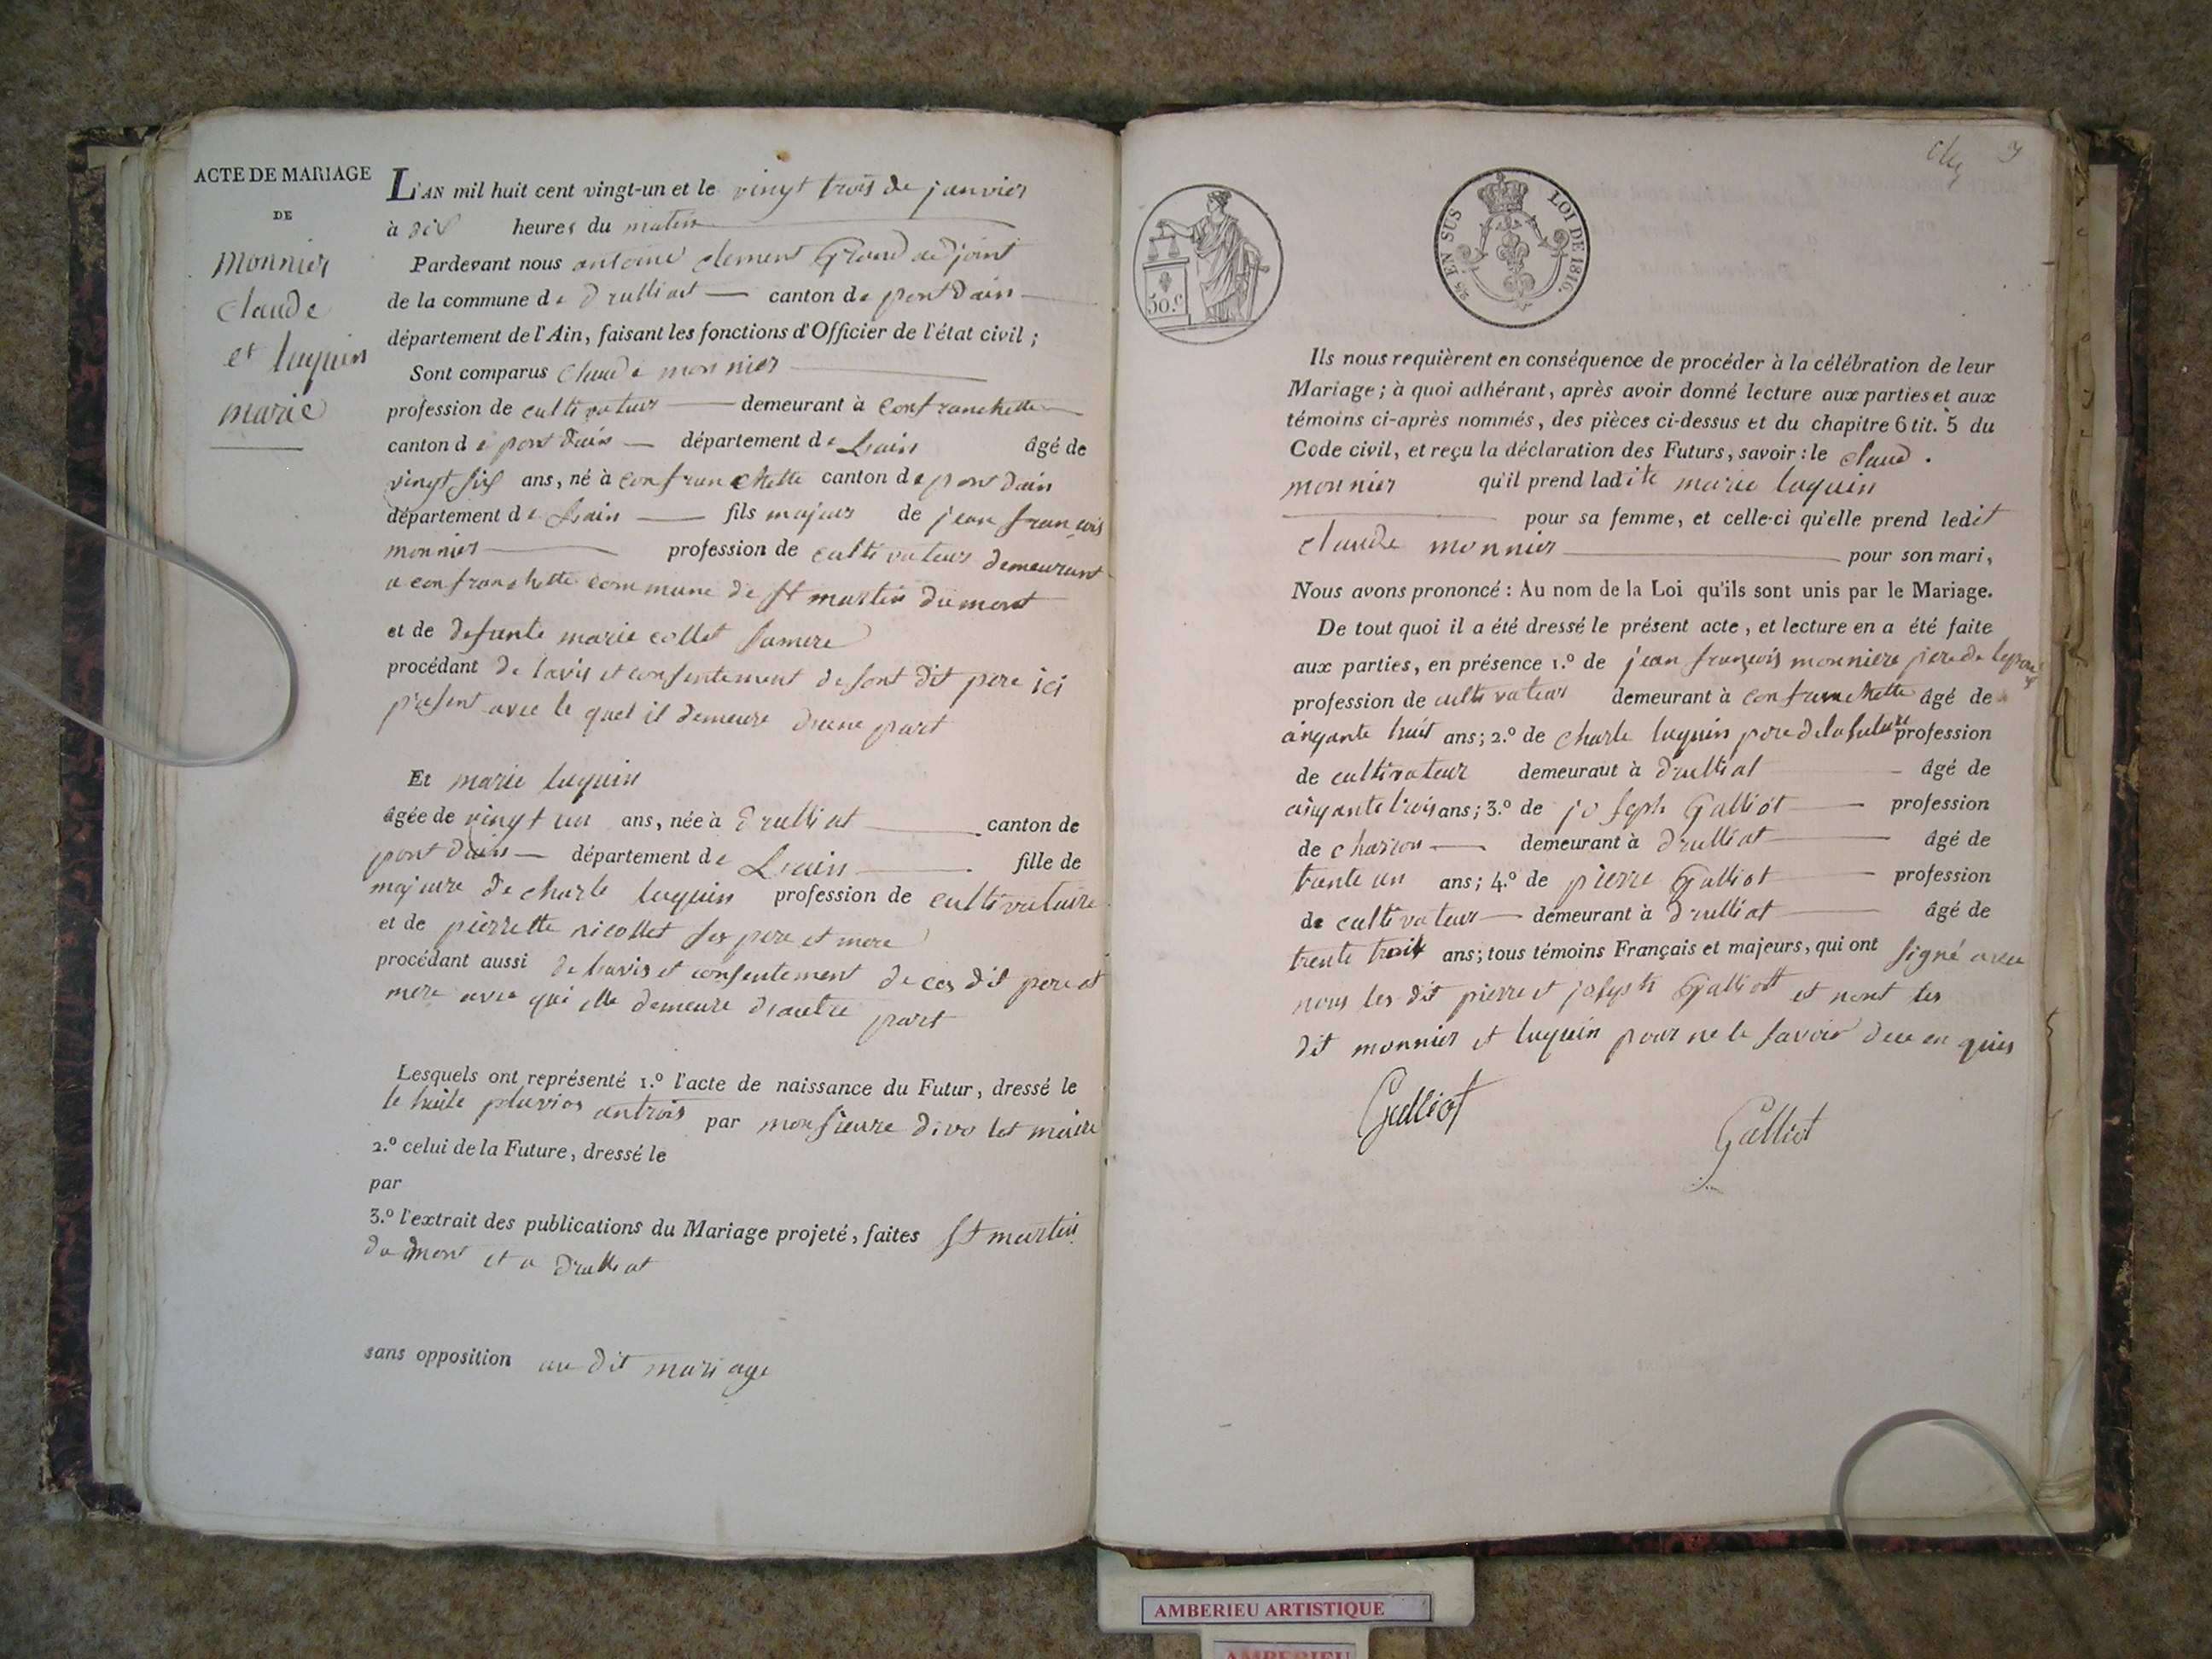 ACTE DE MARIAGE
DE
monnier
claude
et luquin
marie
L'AN mil huit cent vingt-un et le vingt trois de janvier
à dix heures du matin
Pardevant nous antoine clement Grand adjoint
de la commune de Drulliat canton de pont dain
département de l'Ain, faisant les fonctions d'Officier de l'état civil ;
Sont comparus claude monnier
profession de cultivateur demeurant à confranchette
canton de pont dain département de Lain âgé de
vingt six ans, né à confranchette canton de pont dain
département de Lain fils majeur de jean françois
monnier profession de cultivateur demeurant
a confranchette commune de st martin du mont
et de defunte marie collet samere
procédant de lavis et consentement de sont dit pere ici
present avec le quel il demeure dune part
Et marie luquin
âgée de vingt un ans, née à Drulliat canton de
pont dain département de Lain fille de
majeure de charle luquin profession de cultivateure
et de pierrette nicollet ses pere et mere
procédant aussi de lavis et consentement de ces dit pere et
mere avec qui elle demeure dautre part
Lesquels ont représenté 1.º l'acte de naissance du Futur, dressé le
le huite pluvios antrois par monsieure divo let maire
2.º celui de la Future, dressé le
par
3.º l'extrait des publications du Mariage projeté, faites st martin
du mont et a drulliat
sans opposition au dit mariage
50.c
EN SUS
LOI DE 1816.
Ils nous requièrent en conséquence de procéder à la célébration de leur
Mariage ; à quoi adhérant, après avoir donné lecture aux parties et aux
témoins ci-après nommés, des pièces ci-dessus et du chapitre 6 tit. 5 du
Code civil, et reçu la déclaration des Futurs, savoir : le claud.
monnier qu'il prend ladite marie luquin
pour sa femme, et celle-ci qu'elle prend ledit
claude monnier pour son mari,
Nous avons prononcé : Au nom de la Loi qu'ils sont unis par le Mariage.
De tout quoi il a été dressé le présent acte, et lecture en a été faite
aux parties, en présence 1.º de jean françois monniere pere de
profession de cultivateur demeurant à confranchette âgé de
cinqante huit ans ; 2.º de charle luquin pere de la future profession
de cultivateur demeurant à drulliat âgé de
cinqante trois ans ; 3.º de joseph Galliot profession
de charron demeurant à drulliat âgé de
trente un ans ; 4.º de pierre Galliot profession
de cultivateur demeurant à drulliat âgé de
trente trois ans ; tous témoins Français et majeurs, qui ont signé avec
nous les dit pierre et joseph Galliott et nont les
dit monnier et luquin pour ne le savoir de ce en quis
Galliot
Galliot
AMBERIEU ARTISTIQUE
AMBERIEU